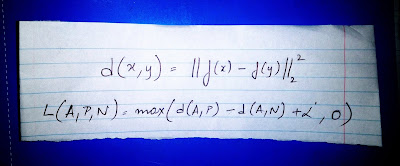 d(x,y) = ||f(x) - f(y)||₂²
L(A,P,N) = max(d(A,P) - d(A,N) + α, 0)